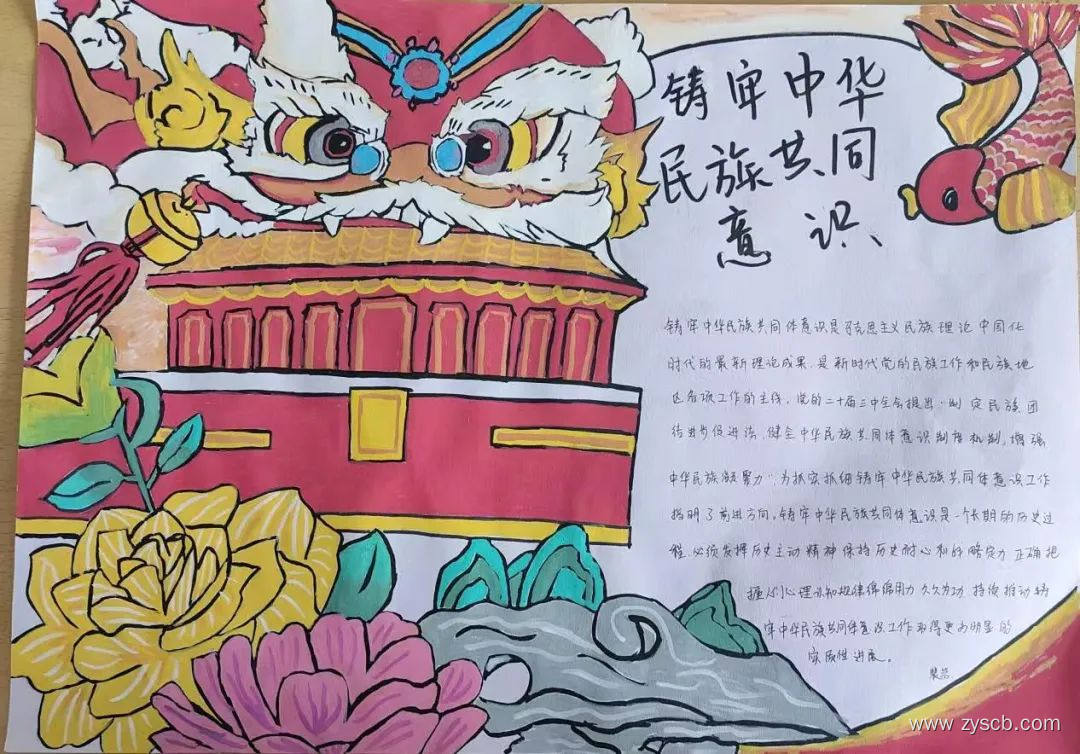 铸牢中华
民族共同
意识
铸牢中华民族共同体意识是马克思主义民族理论中国化
时代的最新理论成果.是新时代党的民族工作和民族地
区各项工作的主线。党的二十届三中全会提出:“制定民族团
结进步促进法,健全中华民族共同体意识制度机制,增强
中华民族凝聚力”.为抓实抓细铸牢中华民族共同体意识工作
指明了前进方向。铸牢中华民族共同体意识是一个长期的历史过
程.必须发挥历史主动精神保持历史耐心和战略定力正确把
握心理认知规律绵绵用力久久为功持续推动铸
牢中华民族共同体意识工作取得更为明显的
实质性进展。
www.zyscb.com